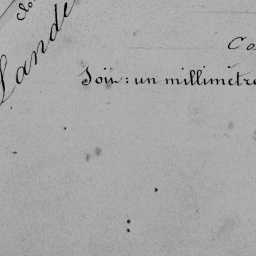 Lande
Co
Soit : un millimètre